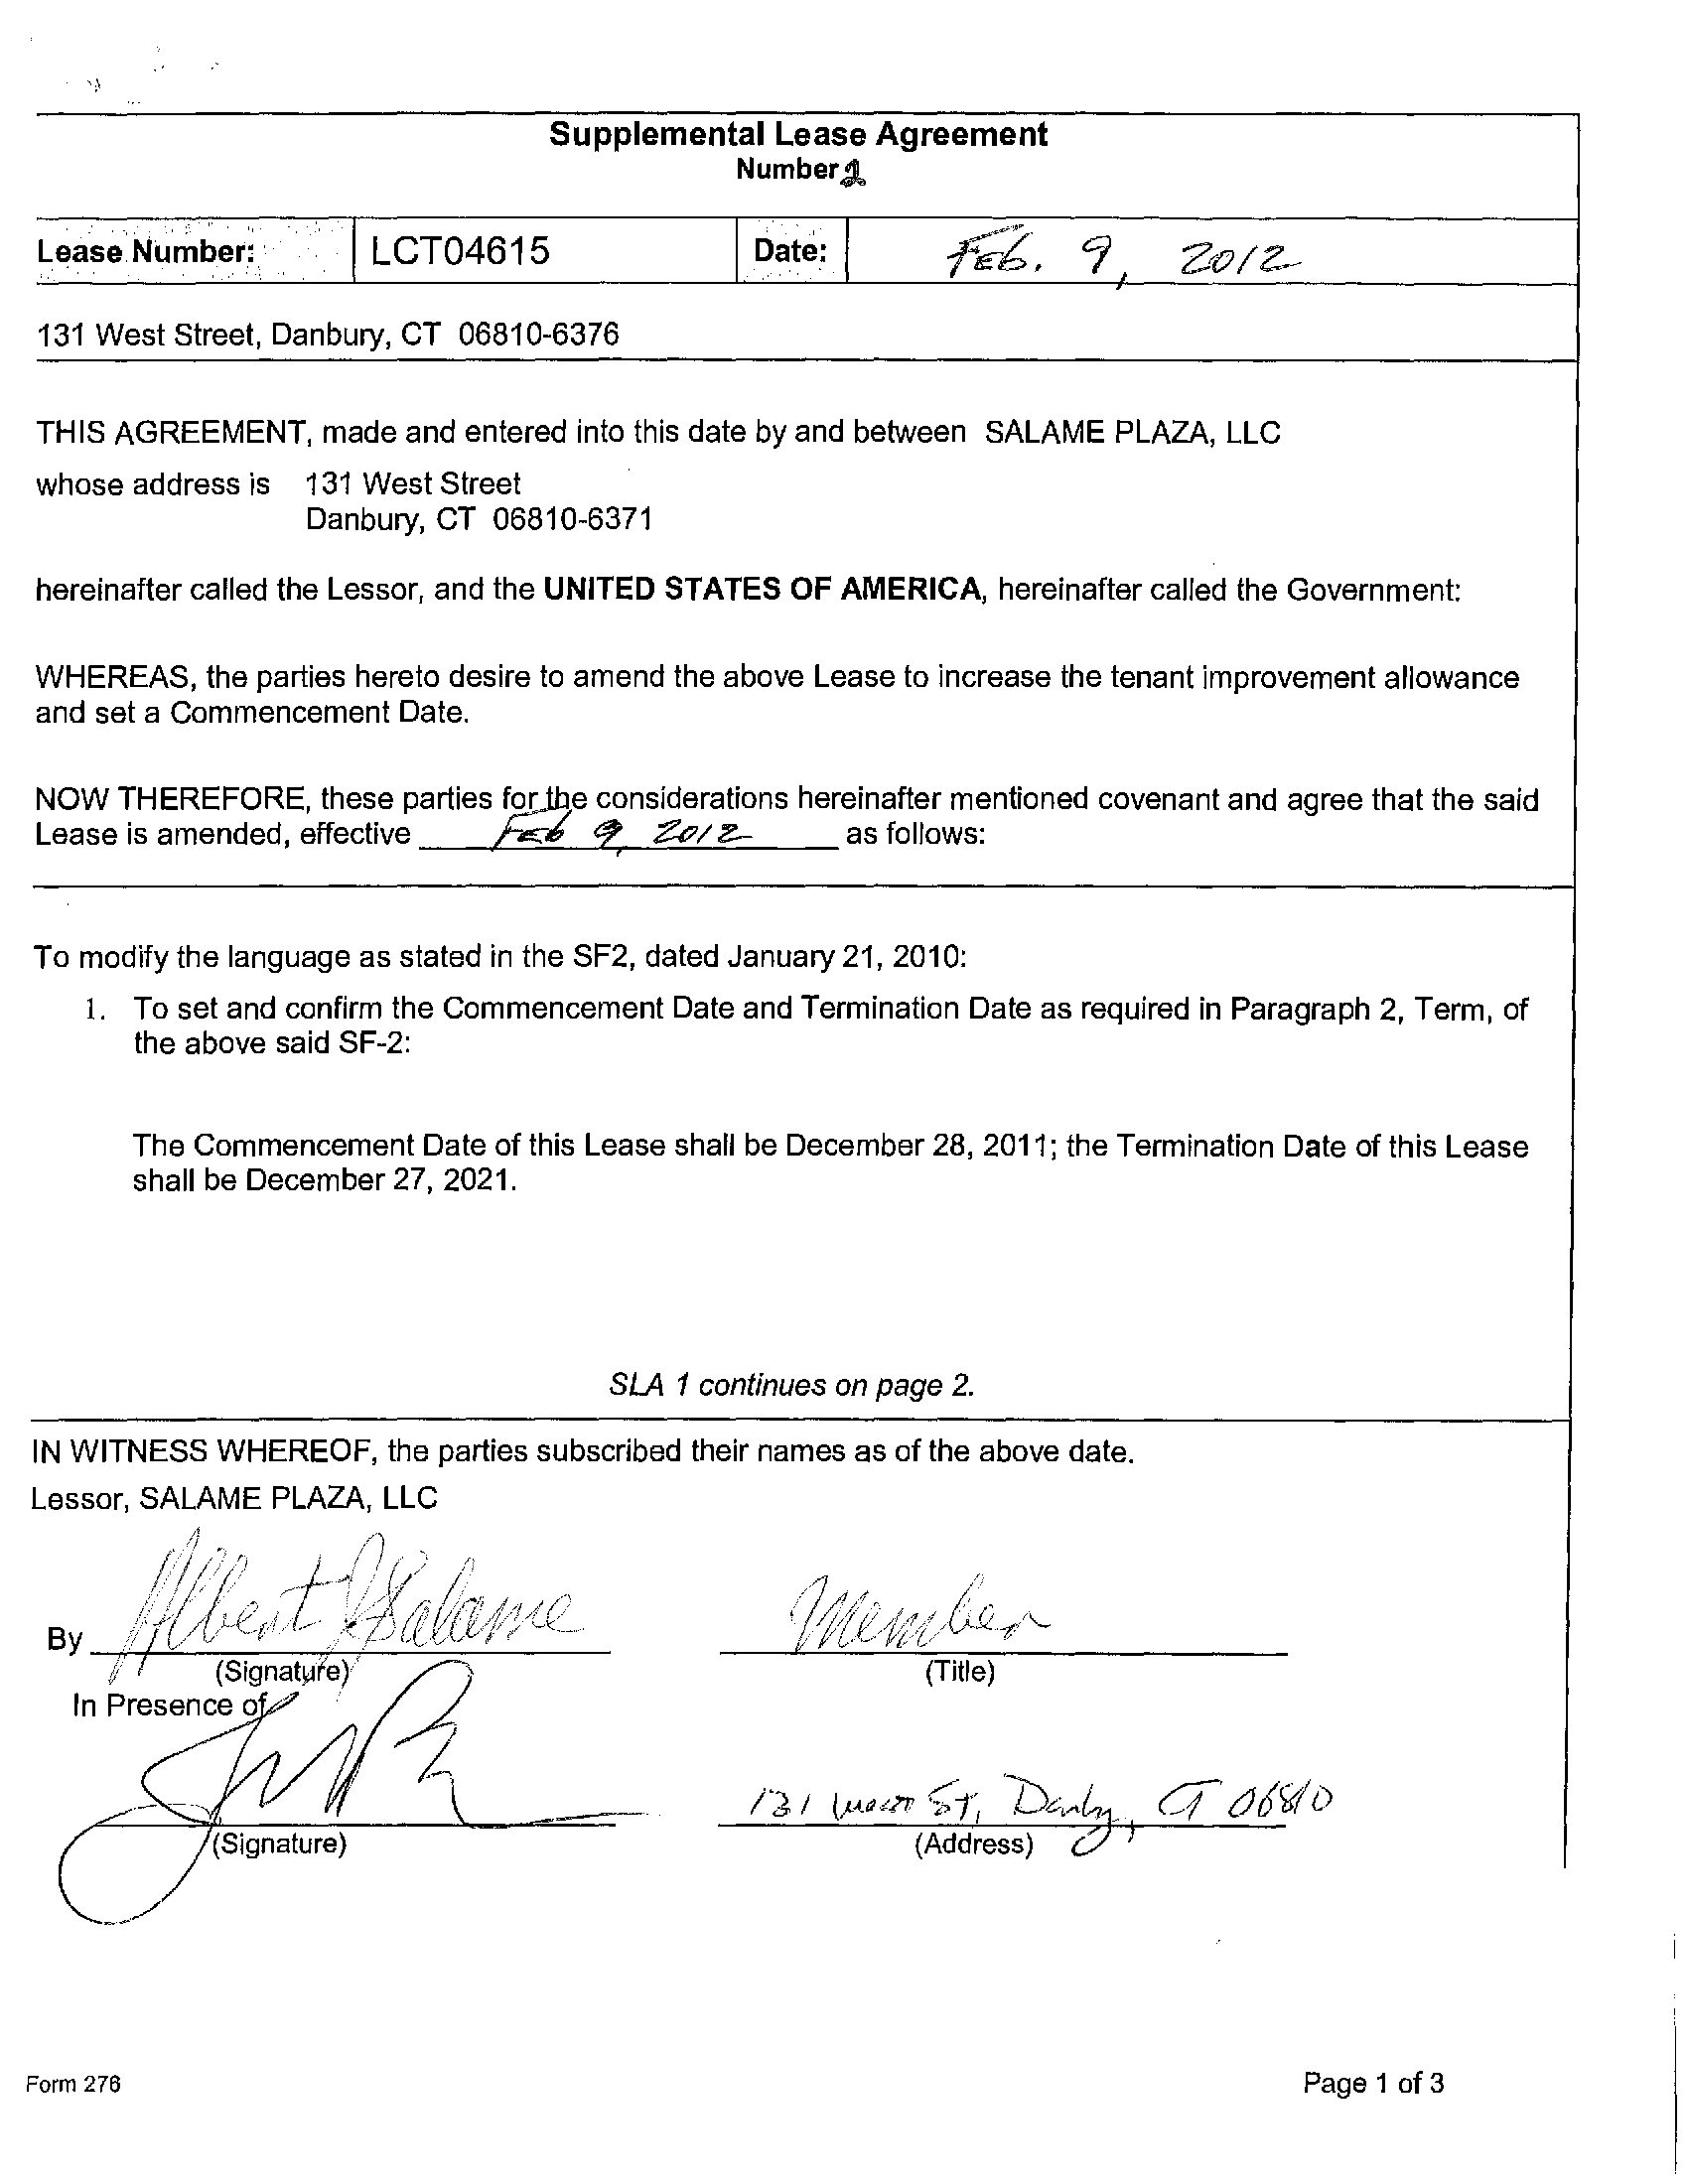 Supplemental Lease Agreement
Number 2
Lease Number: LCT04615 Date: Feb. 9, 2012
131 West Street, Danbury, CT 06810-6376
THIS AGREEMENT, made and entered into this date by and between SALAME PLAZA, LLC
whose address is 131 West Street
Danbury, CT 06810-6371
hereinafter called the Lessor, and the UNITED STATES OF AMERICA, hereinafter called the Government:
WHEREAS, the parties hereto desire to amend the above Lease to increase the tenant improvement allowance
and set a Commencement Date.
NOW THEREFORE, these parties for the considerations hereinafter mentioned covenant and agree that the said
Lease is amended, effective Feb 9, 2012 as follows:
To modify the language as stated in the SF2, dated January 21, 2010:
1. To set and confirm the Commencement Date and Termination Date as required in Paragraph 2, Term, of
the above said SF-2:
The Commencement Date of this Lease shall be December 28, 2011; the Termination Date of this Lease
shall be December 27, 2021.
SLA 1 continues on page 2.
IN WITNESS WHEREOF, the parties subscribed their names as of the above date.
Lessor, SALAME PLAZA, LLC
By Albert J Salame Member
(Signature) (Title)
In Presence of
131 West St, Danbury, CT 06810
(Signature) (Address)
Form 276 Page 1 of 3